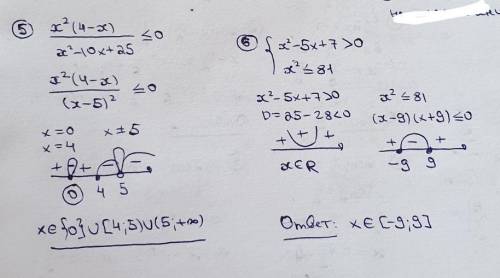 ⑤ x²(4-x) / x²-10x+25 ≤0
x²(4-x) / (x-5)² ≤0
x=0 x≠5
x=4
+ + - -
0 4 5
x∈{0}∪[4;5)∪(5;+∞)
⑥ { x²-5x+7>0
x²≤81
x²-5x+7>0
D=25-28<0
+ + +
x∈R
x²≤81
(x-9)(x+9)≤0
+ - +
-9 9
Ответ: x∈[-9;9]